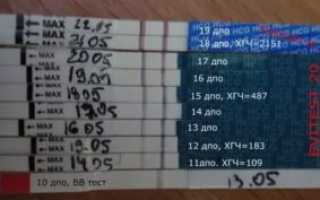 MAX 22.05 19 дпо
MAX 21.05 18 дпо, ХГЧ=2151
MAX 20.05 17 дпо
MAX 19.05 16 дпо
MAX 18.05 15 дпо, ХГЧ=487
MAX 17.05 14 дпо
MAX 16.05 13 дпо
MAX 15.05 12 дпо, ХГЧ=183
MAX 14.05 11дпо, ХГЧ=109
10 дпо, ВВ тест 13.05
EVITEST 20